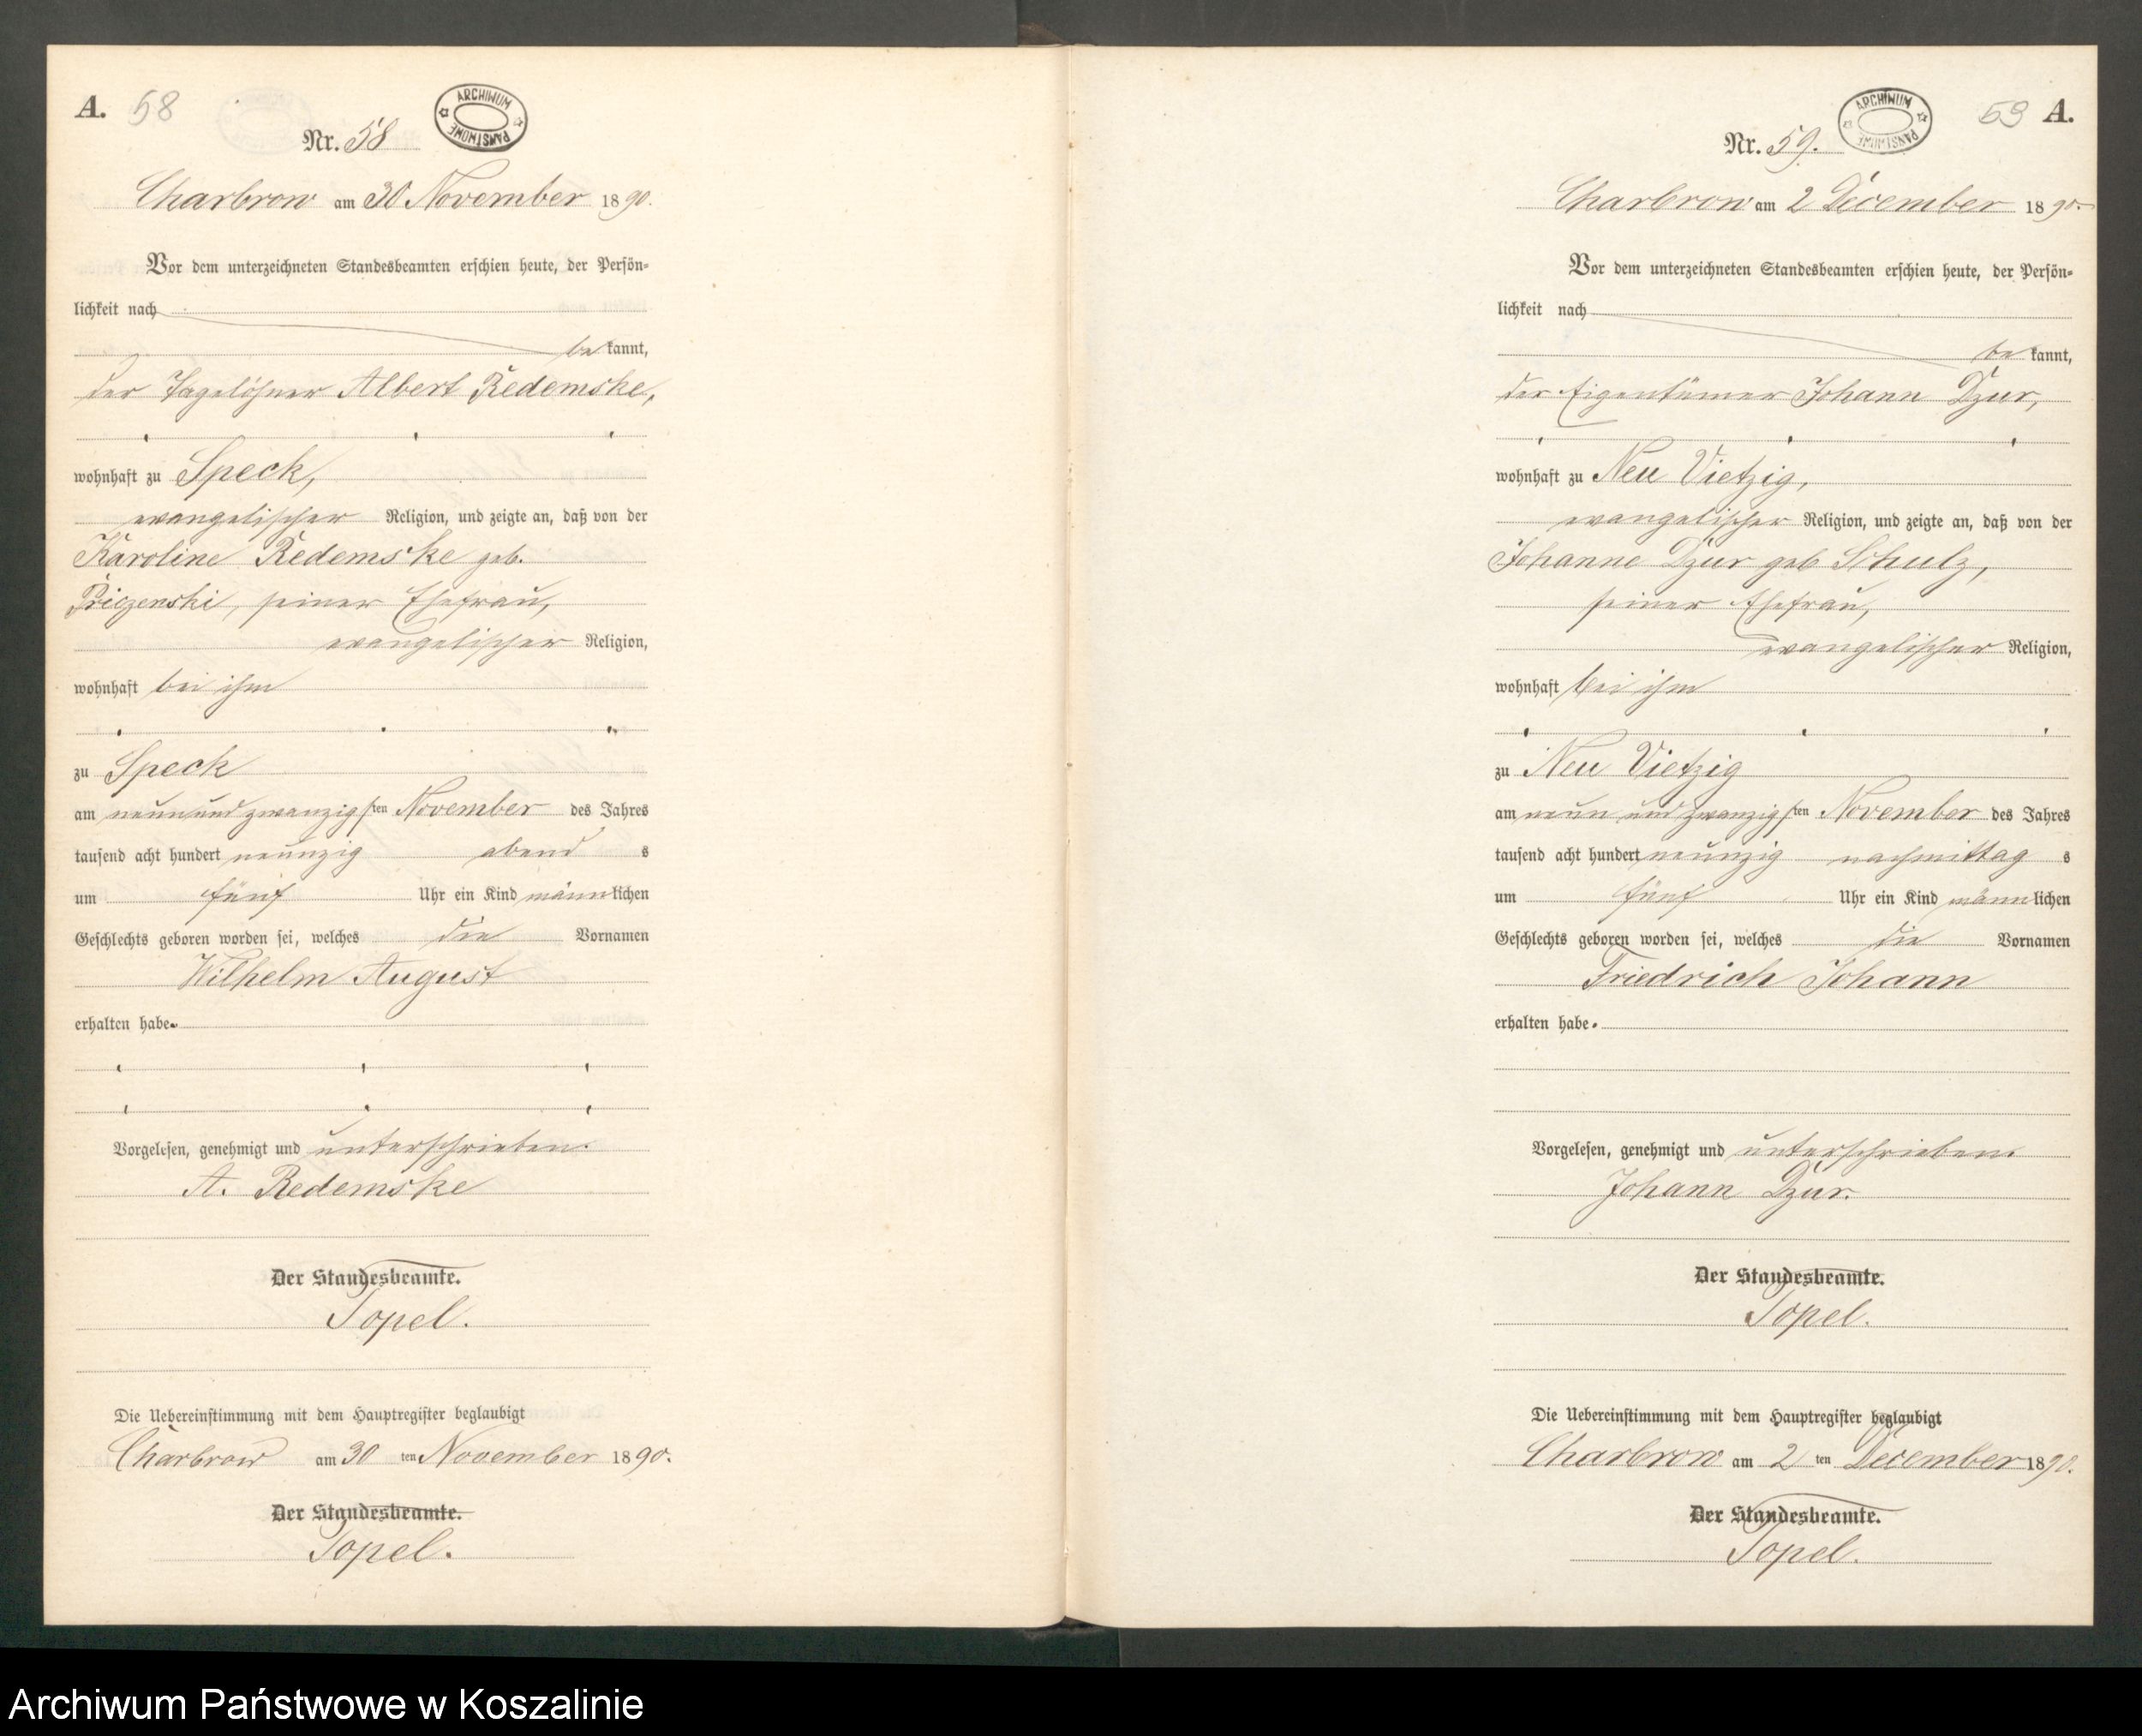 A. 58
ARCHIWUM PAŃSTWOWE
Nr. 58
Charbrow am 30 November 1890.
Vor dem unterzeichneten Standesbeamten erschien heute, der Persön-
lichkeit nach
bekannt,
der Tagelöhner Albert Redemske,
wohnhaft zu Speck,
evangelischer Religion, und zeigte an, daß von der
Karoline Redemske geb.
Priczenski, seiner Ehefrau,
evangelischer Religion,
wohnhaft bei ihm
zu Speck
am neunundzwanzigsten November des Jahres
tausend acht hundert neunzig abends
um fünf Uhr ein Kind männlichen
Geschlechts geboren worden sei, welches die Vornamen
Wilhelm August
erhalten habe.
Vorgelesen, genehmigt und unterschrieben.
A. Redemske
Der Standesbeamte.
Topel.
Die Uebereinstimmung mit dem Hauptregister beglaubigt
Charbrow am 30 ten November 1890.
Der Standesbeamte.
Topel.
59 A.
ARCHIWUM PAŃSTWOWE
Nr. 59.
Charbrow am 2 December 1890.
Vor dem unterzeichneten Standesbeamten erschien heute, der Persön-
lichkeit nach
bekannt,
der Eigentümer Johann Dzur,
wohnhaft zu Neu Vietzig,
evangelischer Religion, und zeigte an, daß von der
Johanne Dzur geb Schulz,
seiner Ehefrau,
evangelischer Religion,
wohnhaft bei ihm
zu Neu Vietzig
am neun und zwanzigsten November des Jahres
tausend acht hundert neunzig nachmittags
um fünf Uhr ein Kind männlichen
Geschlechts geboren worden sei, welches die Vornamen
Friedrich Johann
erhalten habe.
Vorgelesen, genehmigt und unterschrieben.
Johann Dzur.
Der Standesbeamte.
Topel.
Die Uebereinstimmung mit dem Hauptregister beglaubigt
Charbrow am 2 ten December 1890.
Der Standesbeamte.
Topel.
Archiwum Państwowe w Koszalinie